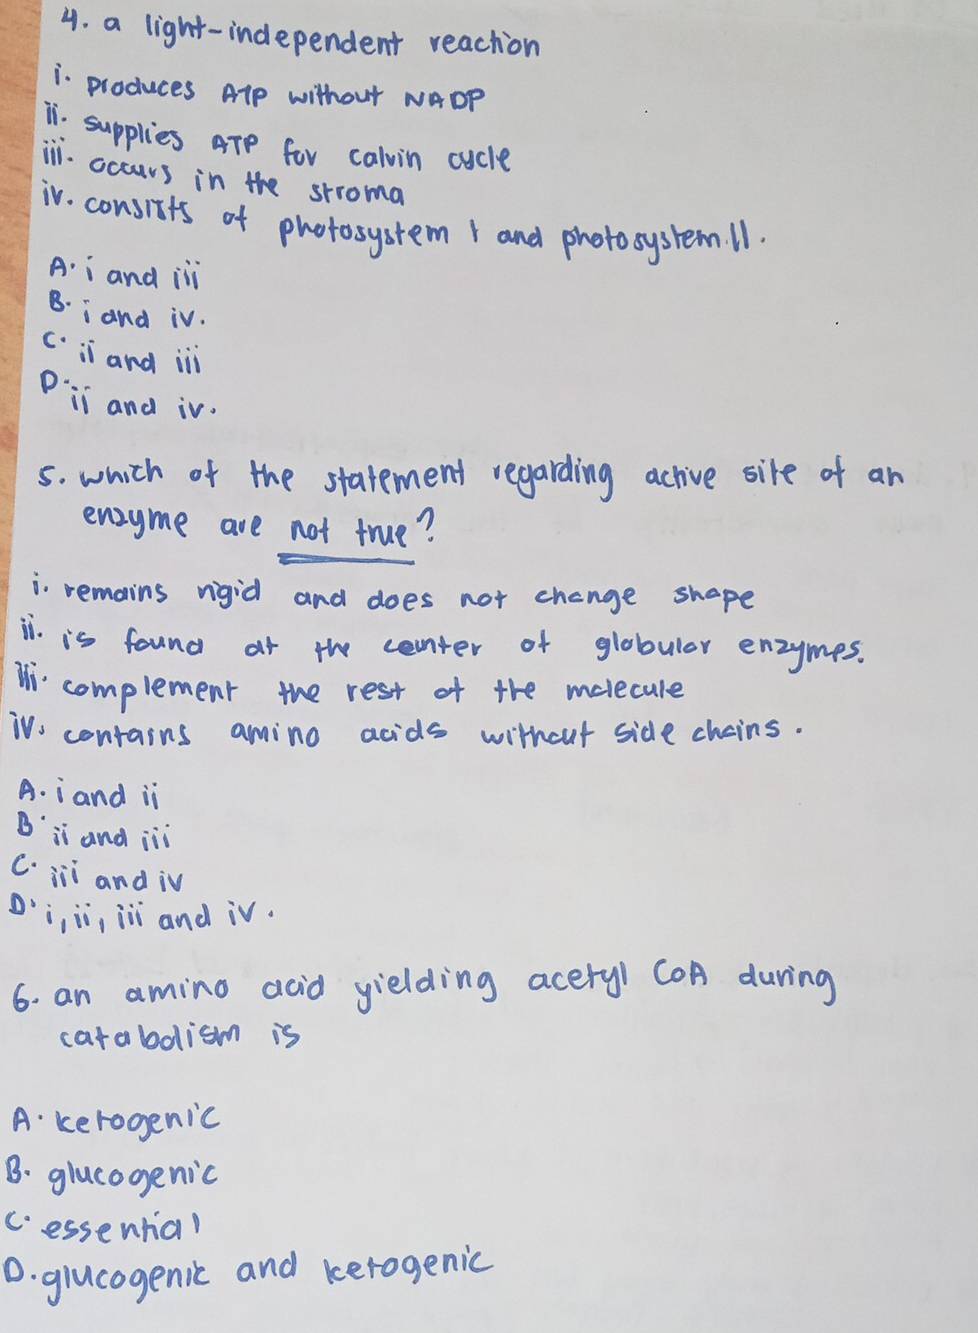 4. a light-independent reaction
i. produces ATP without NADP
ii. supplies ATP for calvin cycle
iii. occurs in the stroma
iv. consists of photosystem I and photosystem II.
A. i and iii
B. i and iv.
C. ii and iii
D. ii and iv.
5. which of the statement regarding active site of an
enzyme are not true?
i. remains rigid and does not change shape
ii. is found at the center of globular enzymes.
iii. complement the rest of the molecule
iv. contains amino acids without side chains.
A. i and ii
B. ii and iii
C. iii and iv
D. i, ii, iii and iv.
6. an amino acid yielding acetyl CoA during
catabolism is
A. ketogenic
B. glucogenic
C. essential
D. glucogenic and ketogenic